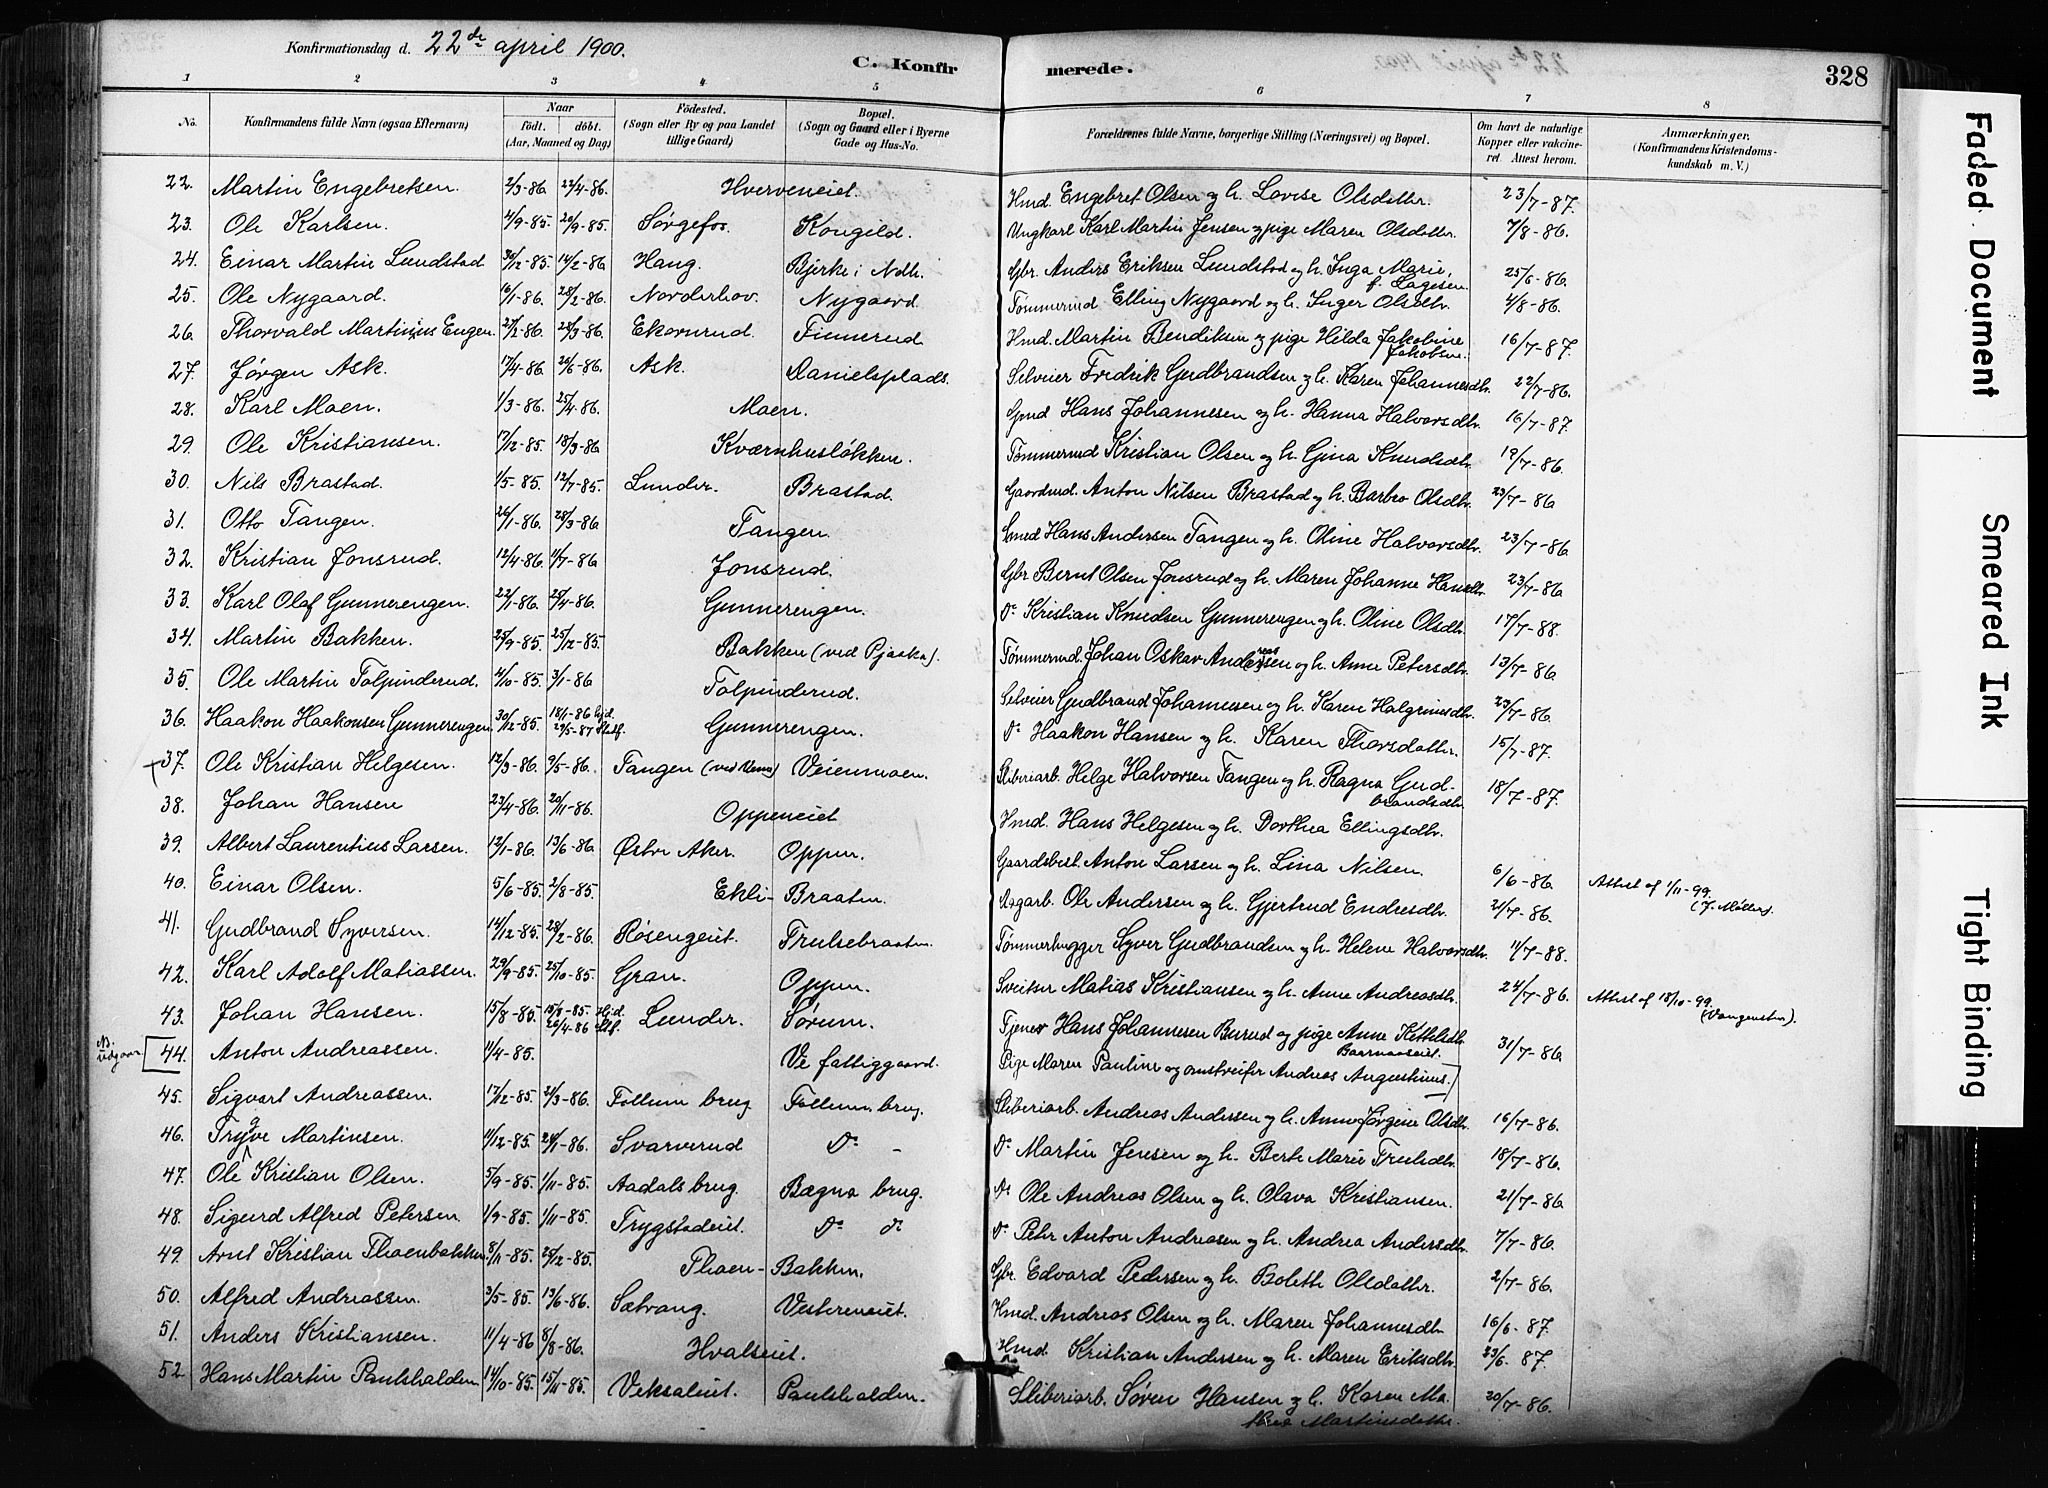 Konfirmationsdag d. 22de april 1900.
C. Konfirmerede.
328
1 2 3 4 5 6 7 8
No. Konfirmandens fulde Navn (ogsaa Efternavn) Naar födt. döbt. (Aar, Maaned og Dag) Födested. (Sogn eller By og paa Landet tillige Gaard) Bopæl. (Sogn og Gaard eller i Byerne Gade og Hus-No. Forældrenes fulde Navne, borgerlige Stilling (Næringsvei) og Bopæl. Om havt de naturlige Kopper eller vakcineret. Attest herom. Anmærkninger. (Konfirmandens Kristendomskundskab m. V.)
22. Martin Engebretsen. 2/3-86. 22/4-86. Hverveneiet Hmd. Engebret Olsen og h. Lovise Olsdattr. 23/7-87.
23. Ole Karlsen. 4/9-85. 20/9-85. Sørgefos. Kongild. Ungkarl Karl Martin Jensen og pige Maren Olsdattr. 7/8-86.
24. Einar Martin Lundstad 30/12-85. 14/2-86 Haug. Bjerke i Ndh. Gbr. Anders Eriksen Lundstad og h. Inga Marie, f. Lagesen. 25/6-86.
25. Ole Nygaard. 16/1-86. 28/2-86. Norderhov. Nygaard. Tømmermd Elling Nygaard og h. Inger Olsdtr. 4/8-86.
26. Thorvald Martinius Engen. 27/2-86. 28/3-86. Ekornrud. Finnerud. Hmd. Martin Bendiksen og pige Hilda Jakobine Jakobsen. 16/7-87.
27. Jørgen Ask. 17/4-86. 20/6-86. Ask. Danielsplads. Selveier Fredrik Gudbrandsen og h. Karen Johannesdtr. 22/7-86.
28. Karl Moen. 1/3-86. 25/4-86. Moen. Hans Johannesen og h. Hanna Halvorsdtr. 16/7-87.
29. Ole Kristiansen. 17/12-85. 18/3-86 Kværnhusløkken. Tømmermd Kristian Olsen og h. Gina Knudsdtr. 19/7-86.
30. Nils Brastad. 1/5-85. 12/7-85. Lunder. Brastad. Gaardmd. Anton Nilsen Brastad og h. Barbro Olsdtr. 23/7-86
31. Otto Tangen. 26/1-86. 28/3-86 Tangen. Smed Hans Andersen Tangen og h. Oline Halvorsdtr. 23/7-86
32. Kristian Jonsrud. 12/4-86. 11/7-86 Jonsrud. Gbr Bernt Olsen Jonsrud og h. Maren Johanne Hansdtr. 23/7-86
33. Karl Olaf Gunnerengen. 22/1-86. 25/4-86. Gunnerengen. Do Kristian Knudsen Gunnerengen og h. Oline Olsdtr. 17/7-88.
34. Martin Bakken. 25/9-85. 25/12-85. Bakken (ved Pjaaka). Tømmermd. Johan Oskar Andersen og h. Anne Petersdtr. 13/7-86
35. Ole Martin Tolpinderud. 4/10-85. 3/1-86 Tolpinderud. Selveier Gudbrand Johannesen og h. Karen Halgrimsdtr. 23/7-86.
36. Haakon Haakonsen Gunnerengen. 30/12-85. 18/1-86 Hjd. 29/5-87 Stadf. Gunnerengen. Do Haakon Hansen og h. Karen Thorsdattr. 15/7-87.
37. Ole Kristian Helgesen. 12/3-86. 9/5-86. Tangen (ved Veme) Veienmoen. Sliberiarb. Helge Halvorsen Tangen og h. Ragna Gudbrandsdtr. 18/7-87.
38. Johan Hansen 23/4-86. 20/11-86. Oppeneiet Hmd. Hans Helgesen og h. Dorthea Ellingsdtr.
39. Albert Laurentius Larsen. 12/1-86. 13/6-86. Østre Aker. Oppen. Gaardsbest. Anton Larsen og h. Lina Nilsen. 6/6-86. Attest af 1/11-99. (J. Møller).
40. Einar Olsen. 5/6-85. 2/8-85. Ekli-Braaten. Ole Andersen og h. Gjertrud Endresdtr. 21/7-86.
41. Gudbrand Syversen. 14/12-85. 28/2-86. Røsengeiet. Trulsebraaten. Tømmerhugger Syver Gudbrandsen og h. Helene Halvorsdtr. 11/7-88.
42. Karl Adolf Matiassen. 29/9-85. 25/10-85. Gran. Oppen. Sveitser Matias Kristiansen og h. Anne Andreasdtr. 24/7-86. Attest af 18/10-99 (Vangensten).
43. Johan Hansen. 15/8-85. 15/8-85. Hjd. 26/4-86 Stf. Lunder. Sørum. Tjener Hans Johannesen Burud og pige Anne Kettelsdtr Baarnaaseiet. 31/7-86
NB. udgaar 44. Anton Andreassen. 11/4-85. Ve fattiggaard. Pige Maren Pauline og omstreifer Andreas Augustinus.
45. Sigvart Andreassen. 17/12-85. 21/3-86. Follum brug. Follum brug. Sliberiarb. Andreas Andersen og h. Anne Jørgine Olsdtr. 16/7-86.
46. Trygve Martinsen. 11/12-85. 24/1-86. Svarverud Do - Do Martin Jensen og h. Berte Marie Trulsdtr. 18/7-86.
47. Ole Kristian Olsen. 5/9-85. 1/11-85. Aadalsbrug. Bægna brug. Do Ole Andreas Olsen og h. Olava Kristiansen. 21/7-86
48. Sigurd Alfred Petersen. 1/9-85. 1/11-85. Trygstadeiet. Do do Do Petr Anton Andreasen og h. Andrea Andersdtr. 7/7-86.
49. Arnt Kristian Thoenbakken. 8/11-85. 25/12-85. Thoen-Bakken. Gbr. Edvard Pedersen og h. Boleth Olsdattr. 2/7-86.
50. Alfred Andreassen. 3/5-85. 13/6-86. Sætrang. Vestereneiet. Hmd. Andreas Olsen og h. Maren Johannesdtr. 16/6-87.
51. Anders Kristiansen. 11/4-86 8/8-86. Hvalseiet. Hmd. Kristian Andersen og h. Maren Eriksdtr. 23/6-87.
52. Hans Martin Paulshalden 14/10-85. 15/11-85. Veksaleiet. Paulshalden. Sliberiarb. Søren Hansen og h. Karen Mathea Martinsdattr. 20/7-86.
Faded Document
Smeared Ink
Tight Binding